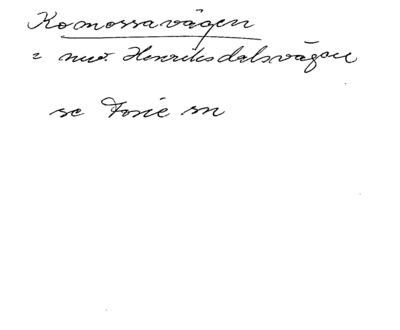 Komossavägen
= nuv. Henriksdalsvägen
se Fosie sn